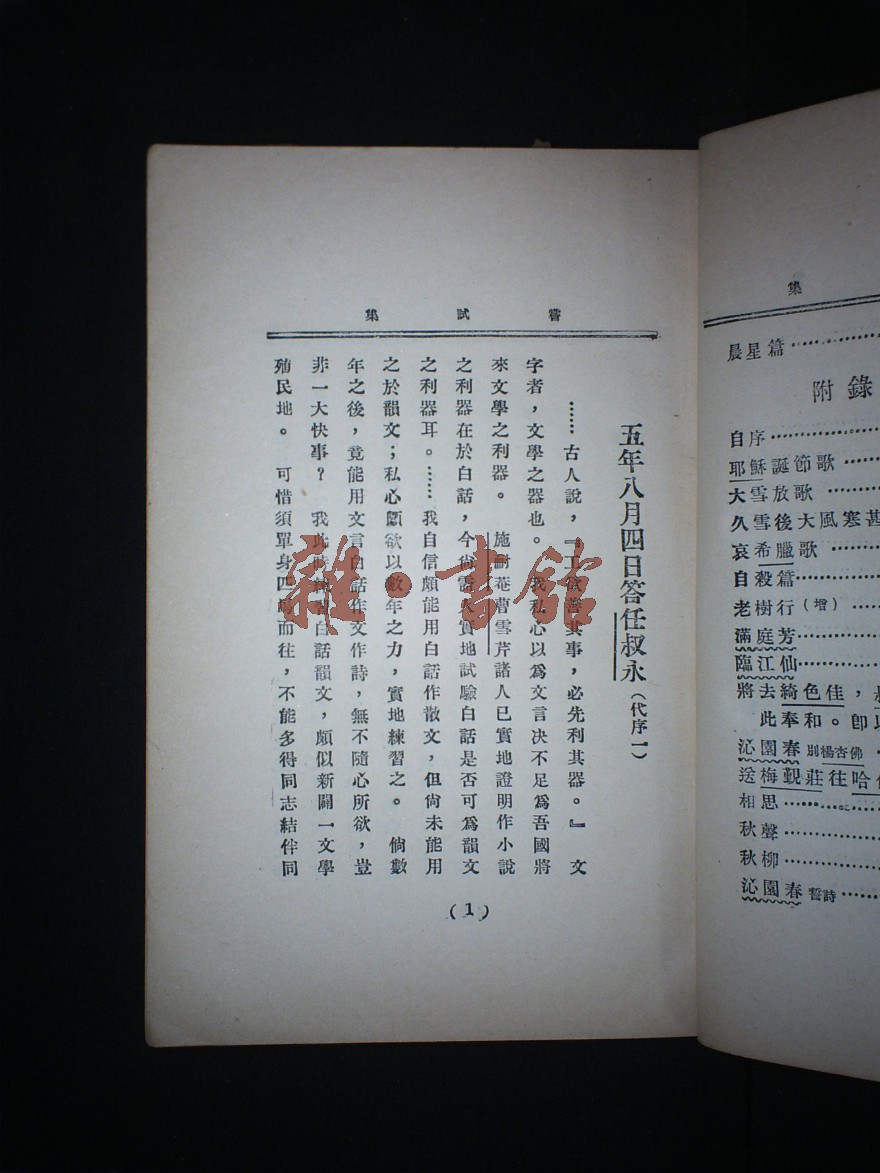 嘗試集
五年八月四日答任叔永（代序一）
……古人說，『工欲善其事，必先利其器。』 文
字者，文學之器也。 我私心以爲文言决不足爲吾國將
來文學之利器。 施耐菴曹雪芹諸人已實地證明作小說
之利器在於白話，今尙需人實地試驗白話是否可爲韻文
之利器耳。……我自信頗能用白話作散文，但尙未能用
之於韻文；私心頗欲以數年之力，實地練習之。 倘數
年之後，竟能用文言白話作文作詩，無不隨心所欲，豈
非一大快事？ 我此時練習白話韻文，頗似新闢一文學
殖民地。 可惜須單身匹馬而往，不能多得同志結伴同
(1)
集
晨星篇……………
附錄
自序……………
耶穌誕節歌……
大雪放歌………
久雪後大風寒甚
哀希臘歌………
自殺篇…………
老樹行（增）……
滿庭芳…………
臨江仙…………
將去綺色佳，
此奉和。卽以
沁園春 別楊杏佛
送梅覲莊往哈
相思……………
秋聲……………
秋柳……………
沁園春 誓詩……
雜·書館